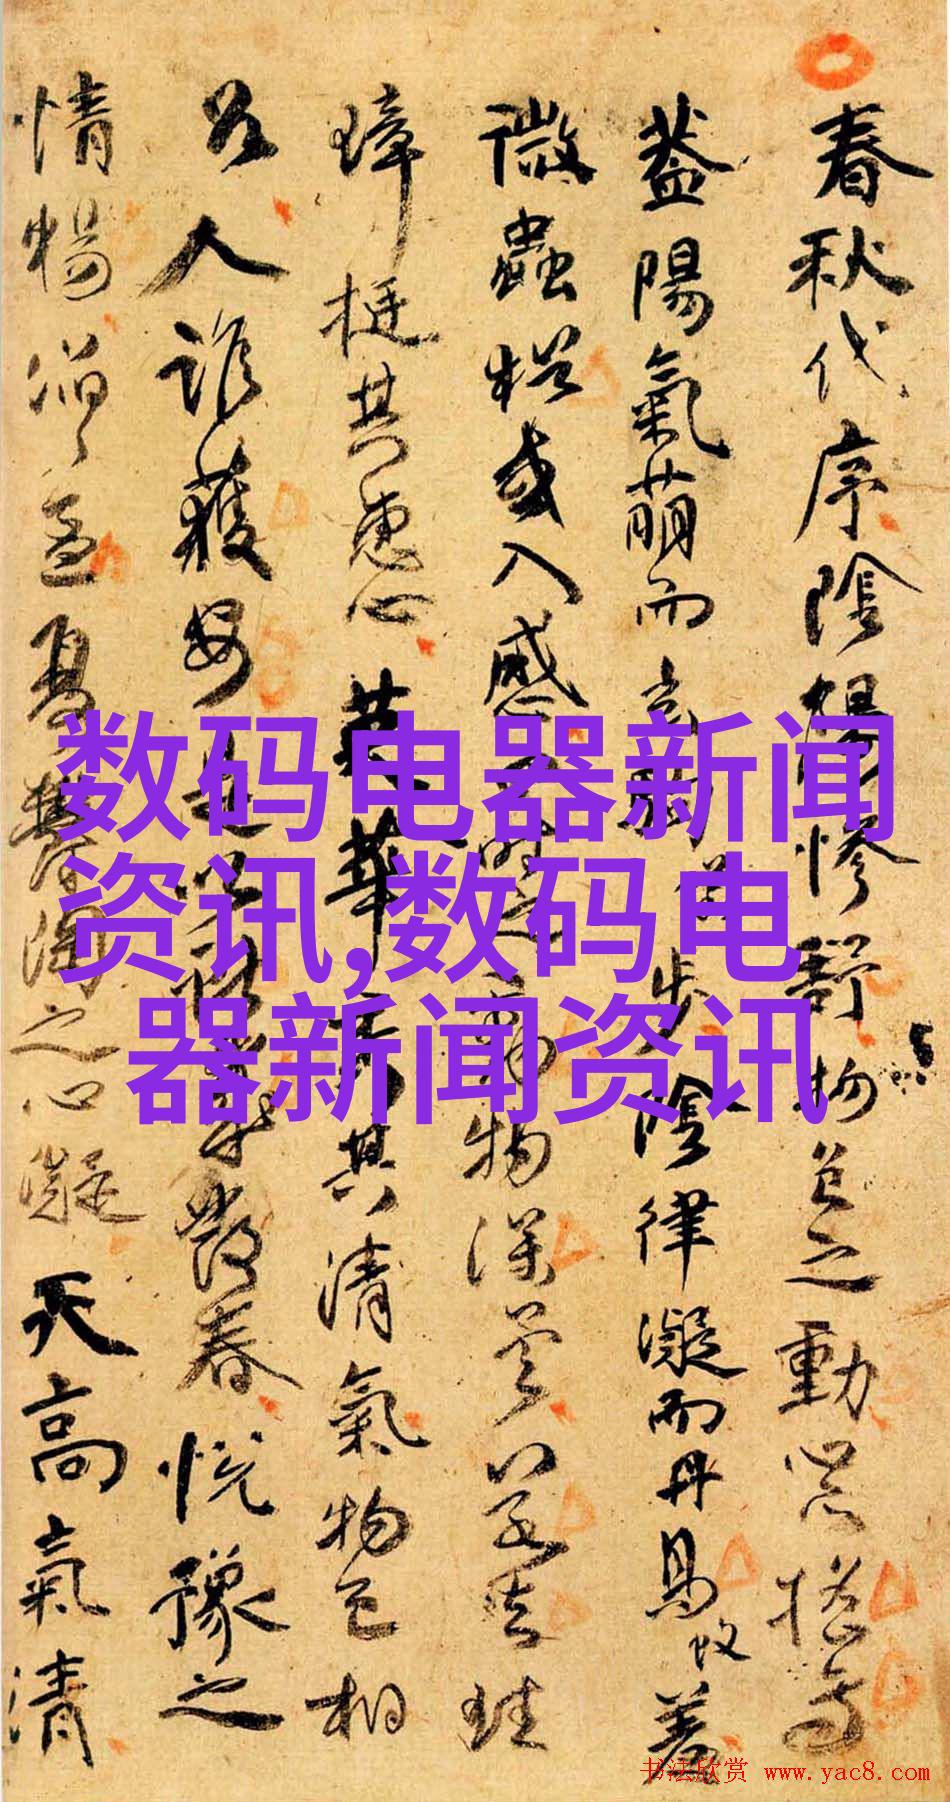 春秋代序陰陽慘舒物色之動心亦搖焉
蓋陽氣萌而玄駒步陰律凝而丹鳥羞
微蟲猶或入感四時之動物深矣若夫珪
璋挺其惠心英華秀其清氣物色相
召人誰獲安是以獻歲發春悅豫之
情暢滔滔孟夏鬱陶之心凝天高氣清
数码电器新闻
资讯,数码电
器新闻资讯
书法欣赏 www.yac8.com